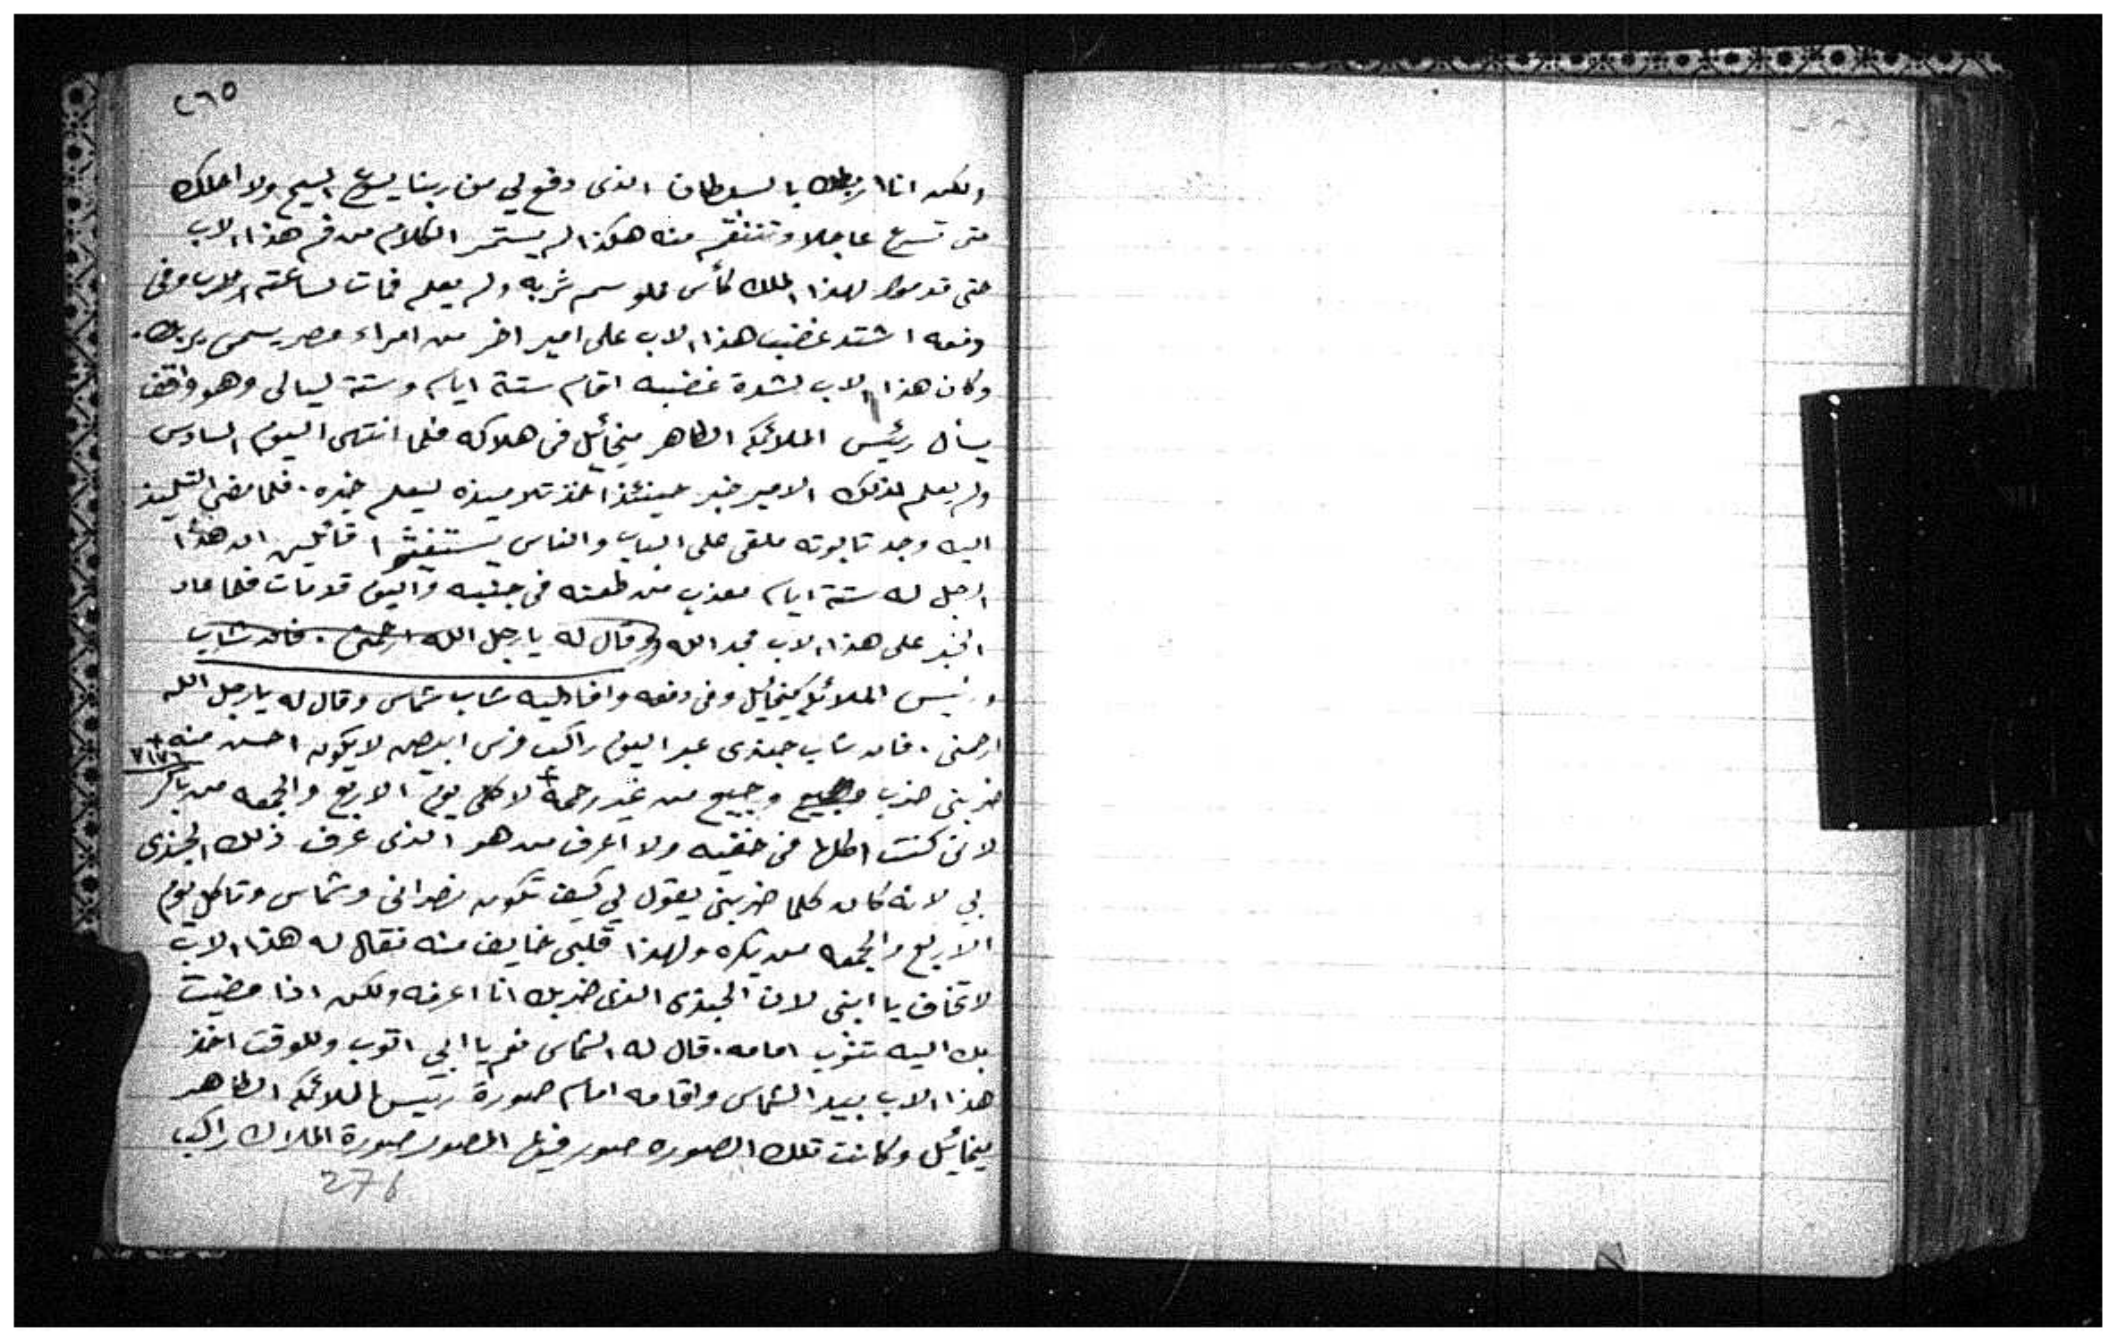 ٢٦٥
ولكن انا اربطك بالسلطان الذى دفع لي من ربنا يسوع المسيح ولا احلك
حتى تسرع عاجلا وتنتقم منه هكذا لم يستمر الكلام من فم هذا الاب
حتى قدموا لهذا الملك كأس مملو سم شربه ولم يعلم فمات لساعته الاب وفى
دفعه اشتد غضب هذا الاب على امير اخر من امراء مصر يسمى
وكان هذا الاب لشدة غضبه اقام ستة ايام وستة ليالى وهو واقف
يسأل رئيس الملائكه الطاهر ميخائيل فى هلاكه فلما انتهى اليوم السادس
ولم يعلم لذلك الامير خبر حينئذ تلاميذه ليعلم خبره . فلما مضى التلميذ
اليه وجد تابوته ملقى على الباب والناس قائلين ان هذا
الرجل له ستة ايام معذب من طعنه فى جنبيه واليوم قد مات فلما عاد
الخبر على هذا الاب مجد الله وقال له يا رجل الله ارحمنى . فان شاب
ورئيس الملائكه ميخائيل وفى دفعه وافا اليه شاب شماس وقال له يا رجل الله
ارحمنى . فان شاب جندى عبر اليوم راكب فرس ابيض لا يكون احسن منه +
٧١٧٦
ضربنى ضرب وجيع من غير رحمة + لاكلى يوم الاربع والجمعه من باكر
لانى كنت اكلها فى خفيه ولا اعرف من هو الذى عرف ذلك الجندى
بي لانه كان كلما ضربنى يقول لي كيف تكون نصرانى وشماس وتاكل يوم
الاربع والجمعه من بكره ولهذا قلبى خايف منه فقال له هذا الاب
لا تخاف يا ابنى لان الجندى الذى ضربك انا اعرفه ولكن اذا مضيت
بك اليه تتوب امامه . قال له الشماس نعم يا ابي اتوب وللوقت اخذ
هذا الاب بيد الشماس واقامه امام صورة رئيس الملائكه الطاهر
ميخائيل وكانت تلك الصوره صور فيها المصور صورة الملاك راكب
276